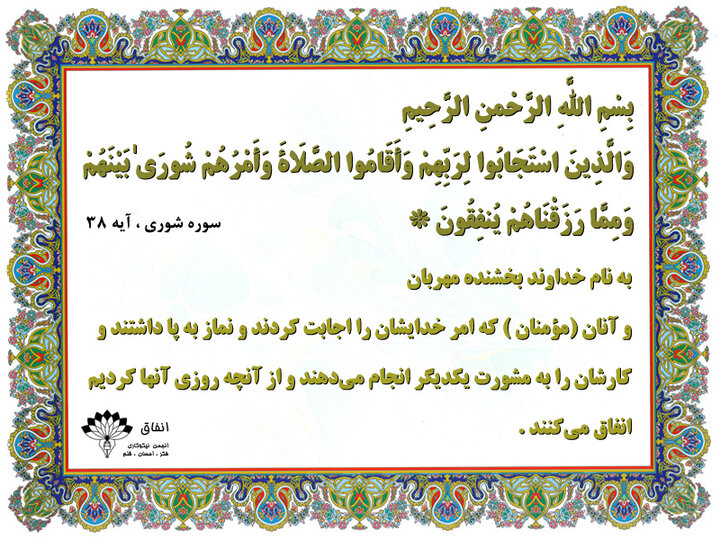 بِسْمِ اللَّهِ الرَّحْمنِ الرَّحِيمِ
وَالَّذِينَ اسْتَجَابُوا لِرَبِّهِمْ وَأَقَامُوا الصَّلَاةَ وَأَمْرُهُمْ شُورَىٰ بَيْنَهُمْ
وَمِمَّا رَزَقْنَاهُمْ يُنفِقُونَ * سوره شوری ، آیه ۳۸
به نام خداوند بخشنده مهربان
و آنان (مؤمنان ) که امر خدایشان را اجابت کردند و نماز به پا داشتند و
کارشان را به مشورت یکدیگر انجام می‌دهند و از آنچه روزی آنها کردیم
انفاق می‌کنند .
انفاق
انجمن نیکوکاری
فکر ، احسان ، قلم